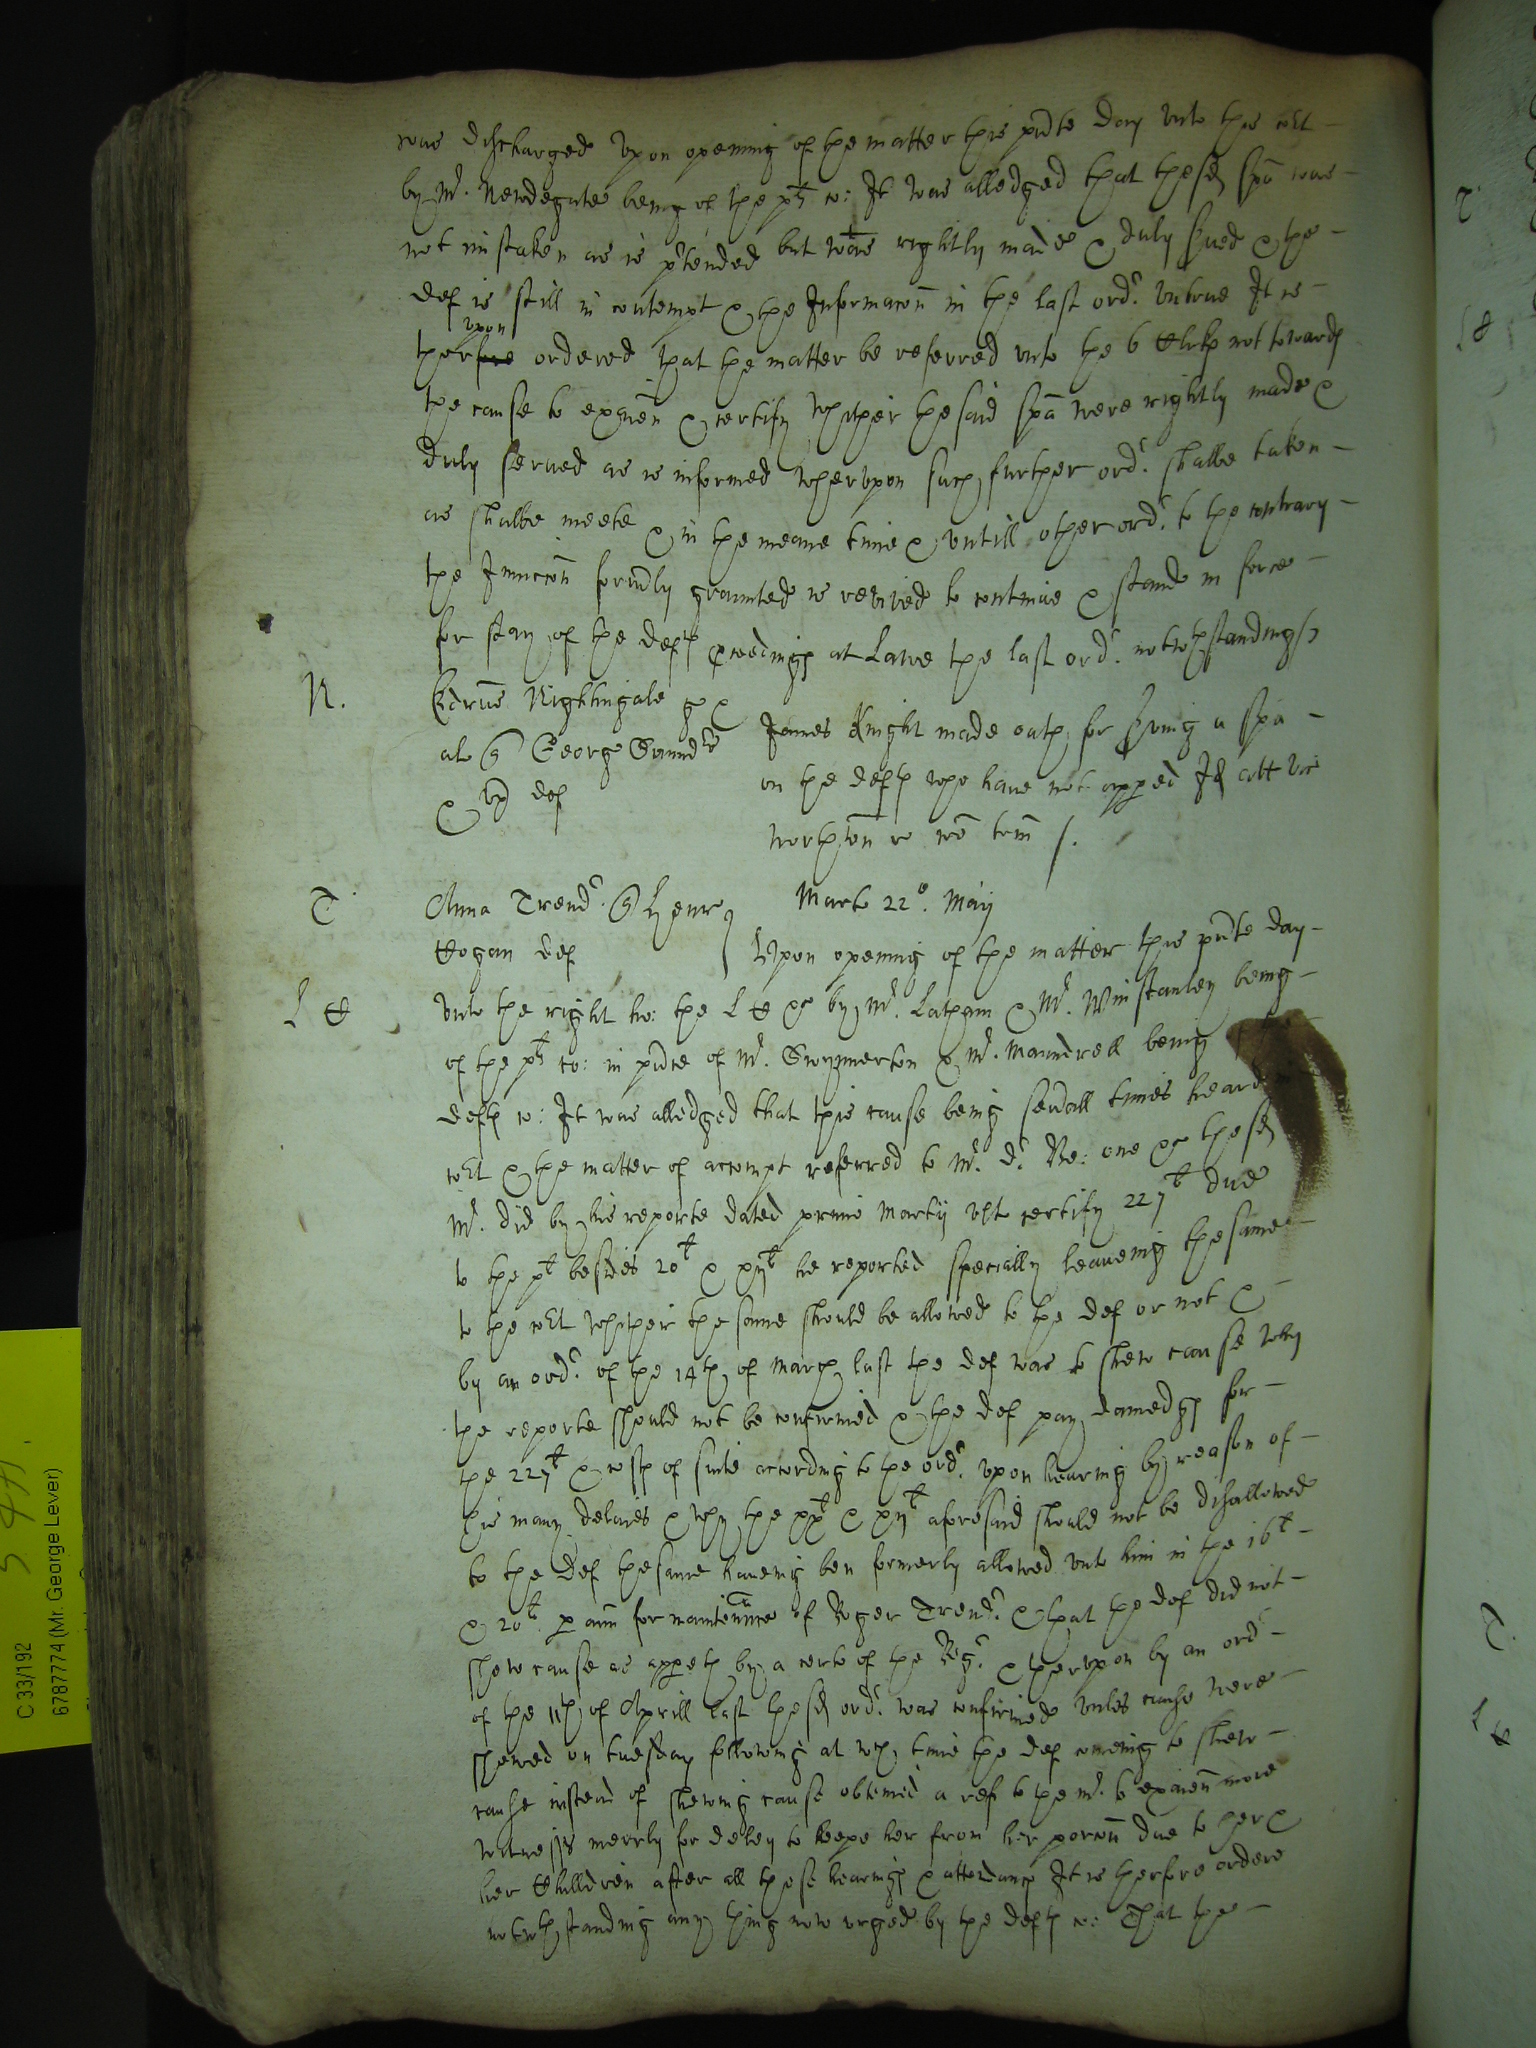 was discharged Vpon opening of the matter this pñte day vnto this coͬt
by Mr. Newdegate being of the plts co: It was alledged that the sd spa was
not mistaken as is p'tended but was rightly made & duly srved & the
def is still in contempt & the Informacoñ in the last ordr. vntrue It is
therfore upon ordered that the matter be referred vnto the 6 Clarks not towards
the cause to exaïen & certify whither the said spa were rightly made &
duly served as is informed wherupon such further ordr. shalbe taken
as shalbe meete & in the meane time & vntill other ordr. to the contrary
the Iniuccoñ formly graunted is revived to continue & stand in force
for stay of the defts pceedings at Lawe the last ordr. notwthstanding
N.
Edrus Nightingale
George Saund'
& Ux def
James Knight made oath for srving a spa
on the defts who have not apped Id att Vic
North'ton r' iiio trm /.
T.
Anna Trendr. Henry
Cogan def
Mart 22o. May
L C
Vpon opening of the matter this pñte day
vnto the right ho: the L C &c by Mr. Latham & Mr. Winstanley being
of the plts co: in pñce of Mr. Swynnerton & Mr. Maundrell being
defts co: It was alledged that this cause being sevall times heard
coͬt & the matter of accompt referred to Mr. Dr. Re: one &c the sd
Mr. did by his reporte dated primo Martij vlt certify 227l due
to the plt besides 20l & xijl he reported specially leaveing the same
to the coͬt whither the same should be allowed to the def or not &
by an ordr. of the 14th of March last the def was to shew cause why
the reporte should not be confirmed & the def pay damedgs for
the 227l & costs of suite according to the ordr. vpon hearing by reason of
his many delaies & why the xxl & xijl aforesaid should not be disallowed
to the def the same haveing ben formerly allowed vnto him in the 16l
& 20l p ann for maintennce of Roger Trendr. & that the def did not
shew cause as appeth by a certe of the Regr. & therupon by an ordr
of the 11th of Aprill last the sd ordr. was confirmed vnles cause were
shewed on tuesday following at wch time the def comeing to shew
cause instead of shewing cause obteined a ref to the Mr. to exaïen more
witnesses merrly for deley to keepe her from her porcoñ due to her &
her Chilldren after all these hearings & attendance It is therfore ordere
notwthstanding any thing now vrged by the defts co: That the
C 33/192
6787774 (Mr. George Lever)